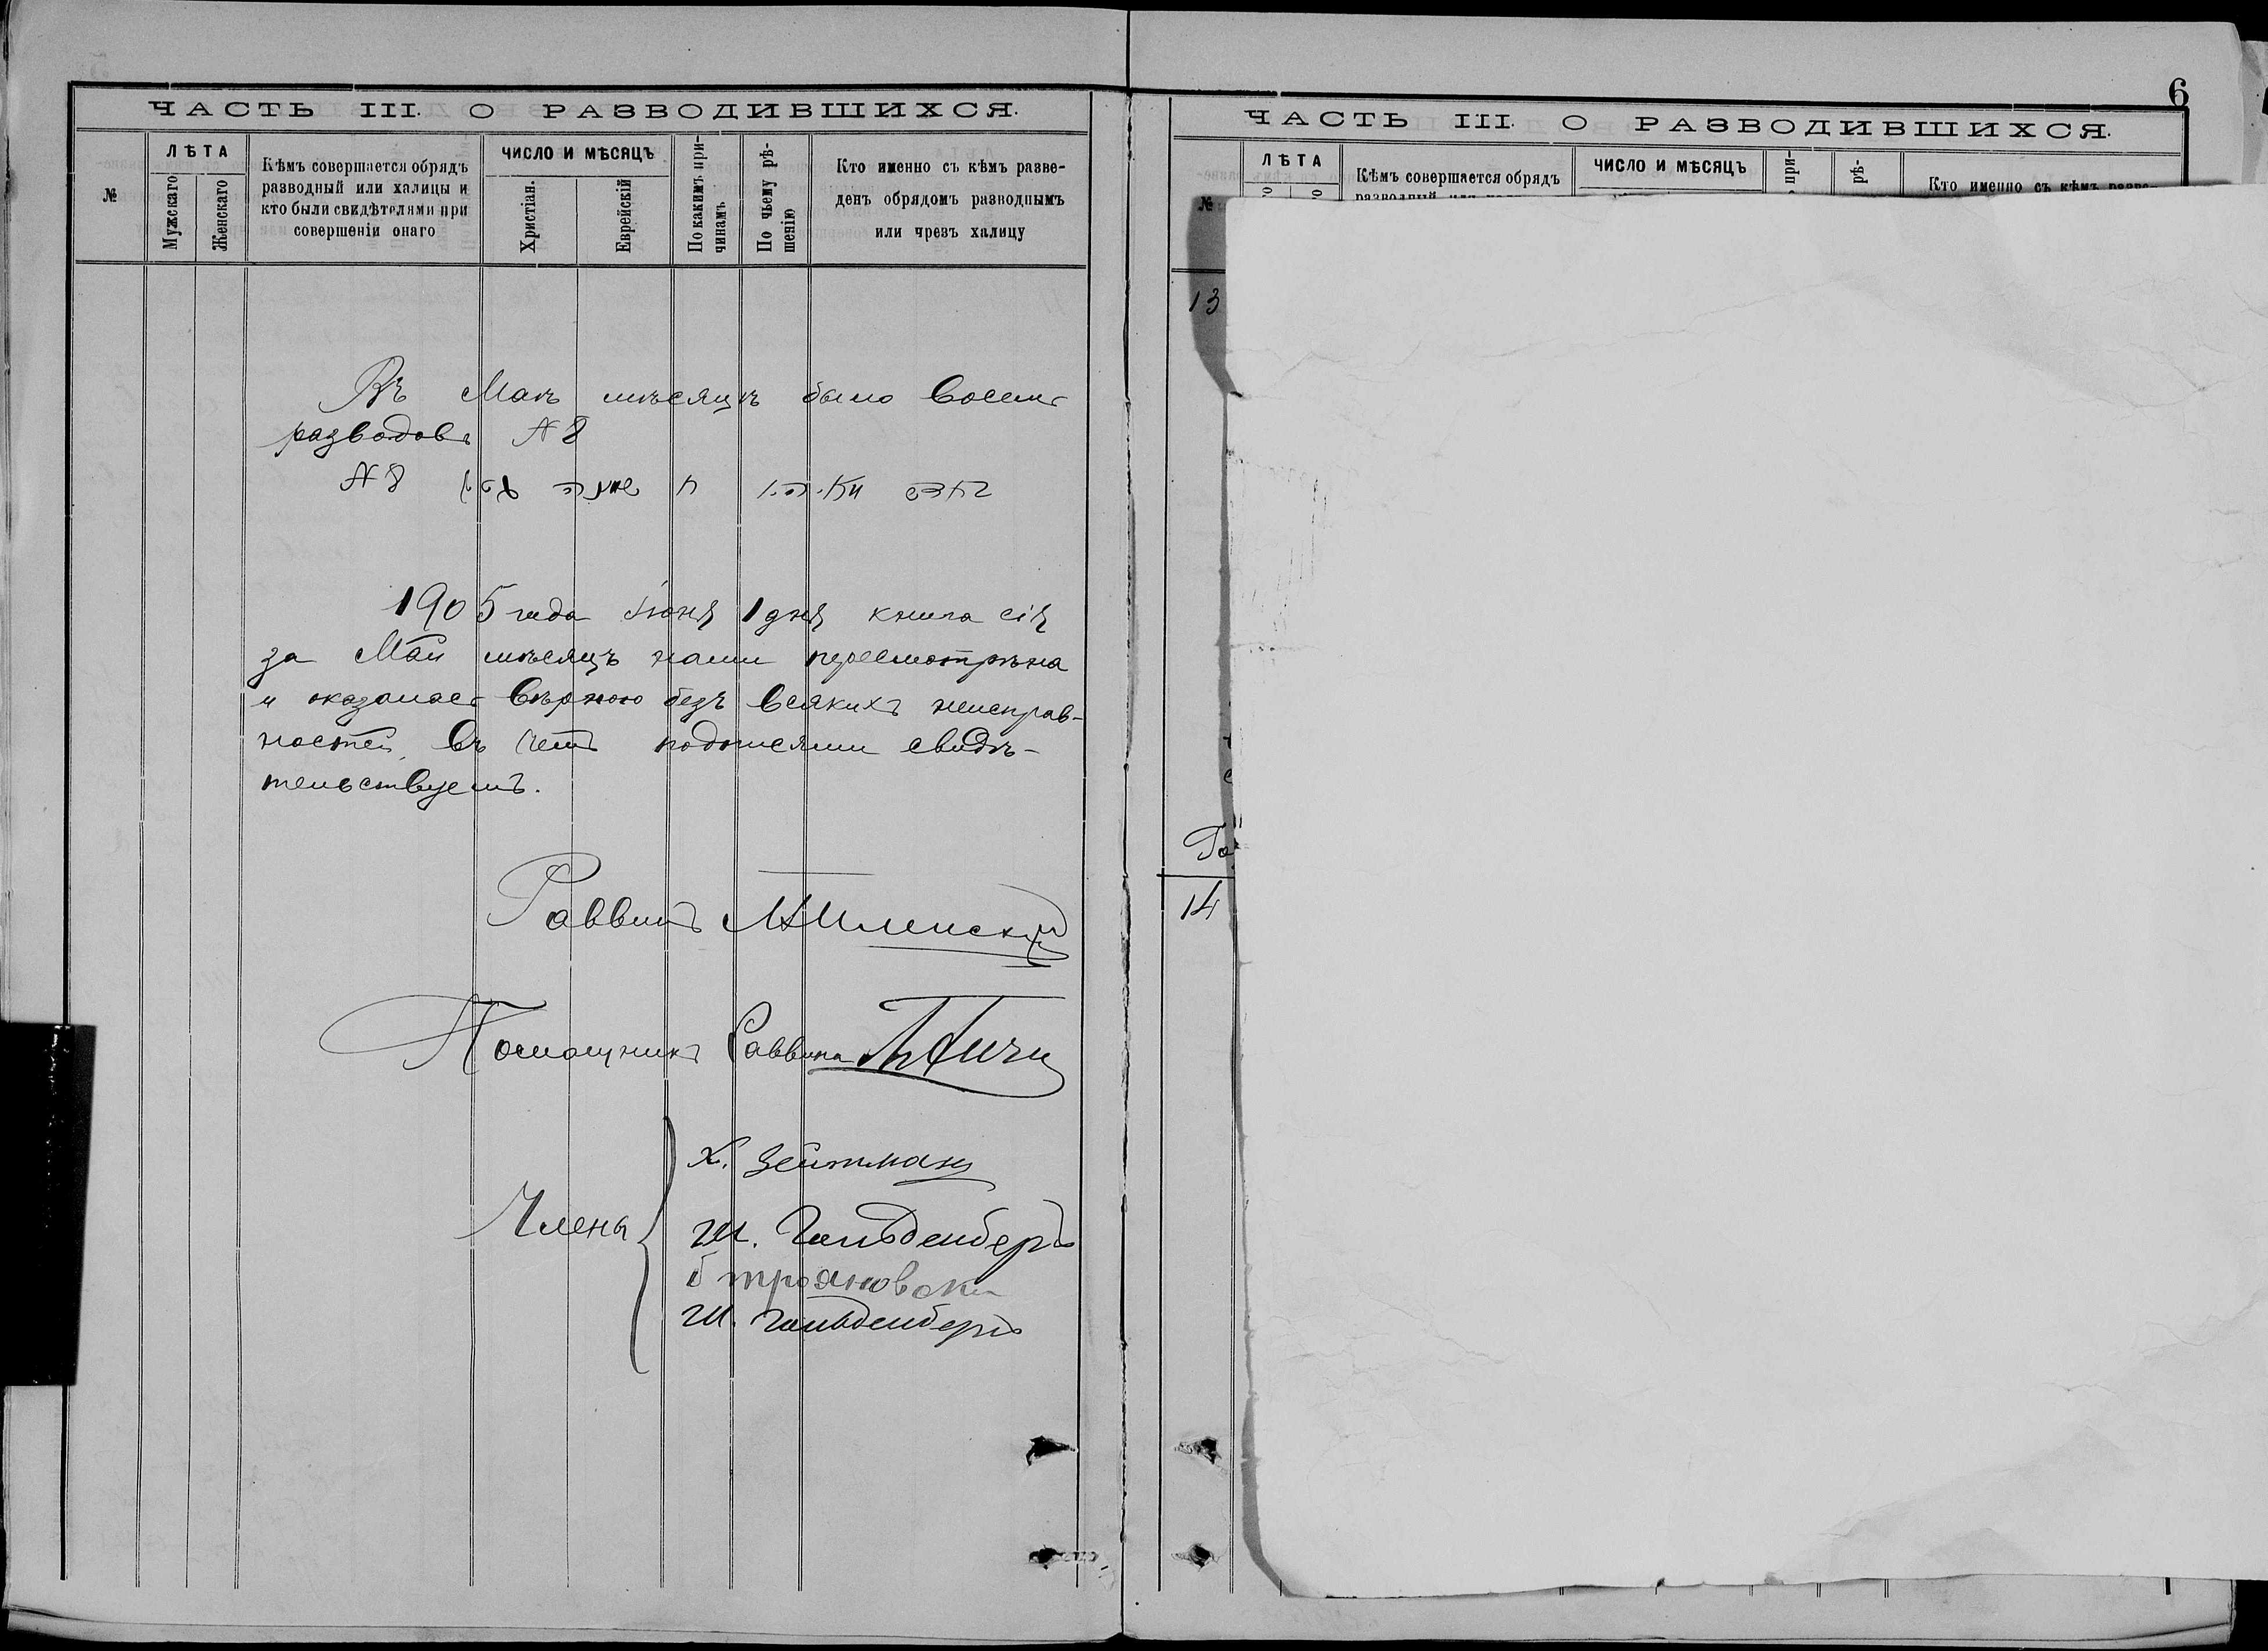 ЧАСТЬ III. О РАЗВОДИВШИХСЯ.
№
ЛѢТА
Мужскаго
Женскаго
Кѣмъ совершается обрядъ
разводный или халицы и
кто были свидѣтелями при
совершеніи онаго
ЧИСЛО И МѢСЯЦЪ
Христіан.
Еврейскій
По какимъ при-
чинамъ
По чьему рѣ-
шенію
Кто именно съ кѣмъ разве-
денъ обрядомъ разводнымъ
или чрезъ халицу
Въ Маѣ мѣсяцѣ было восемь
разводовъ № 8
№ 8
1905 года Іюня 1 дня книга сія
за Май мѣсяцъ нами пересмотрѣна
и оказалась вѣрною безъ всякихъ неисправ-
ностей, въ чемъ подписями свидѣ-
тельствуемъ.
Раввинъ
Помощникъ Раввина
Члены
Х. Зейтманъ
Ш. Гольденбергъ
Б Трояновски
Ш. Гольденбергъ
6
ЧАСТЬ III. О РАЗВОДИВШИХСЯ.
№
ЛѢТА
Кѣмъ совершается обрядъ
ЧИСЛО И МѢСЯЦЪ
при-
рѣ-
Кто именно съ кѣмъ разве-
13
14